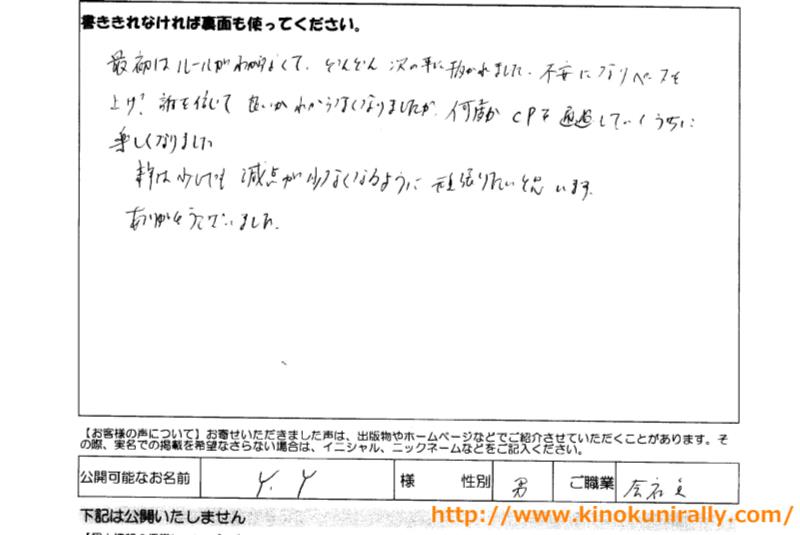 書ききれなければ裏面も使ってください。
最初はルールがわからなくて、どんどん次の車に抜かれました。不安になりペースを
上げ、誰を信じて良いかわからなくなりましたが、何度かCPを通過していくうちに
楽しくなりました
は少しでも減点が少なくなるように頑張りたいと思います。
ありがとうございました。
【お客様の声について】お寄せいただきました声は、出版物やホームページなどでご紹介させていただくことがあります。そ
の際、実名での掲載を希望なさらない場合は、イニシャル、ニックネームなどをご記入ください。
公開可能なお名前 Y.Y 様 性別 男 ご職業 会社員
下記は公開いたしません
http://www.kinokunirally.com/